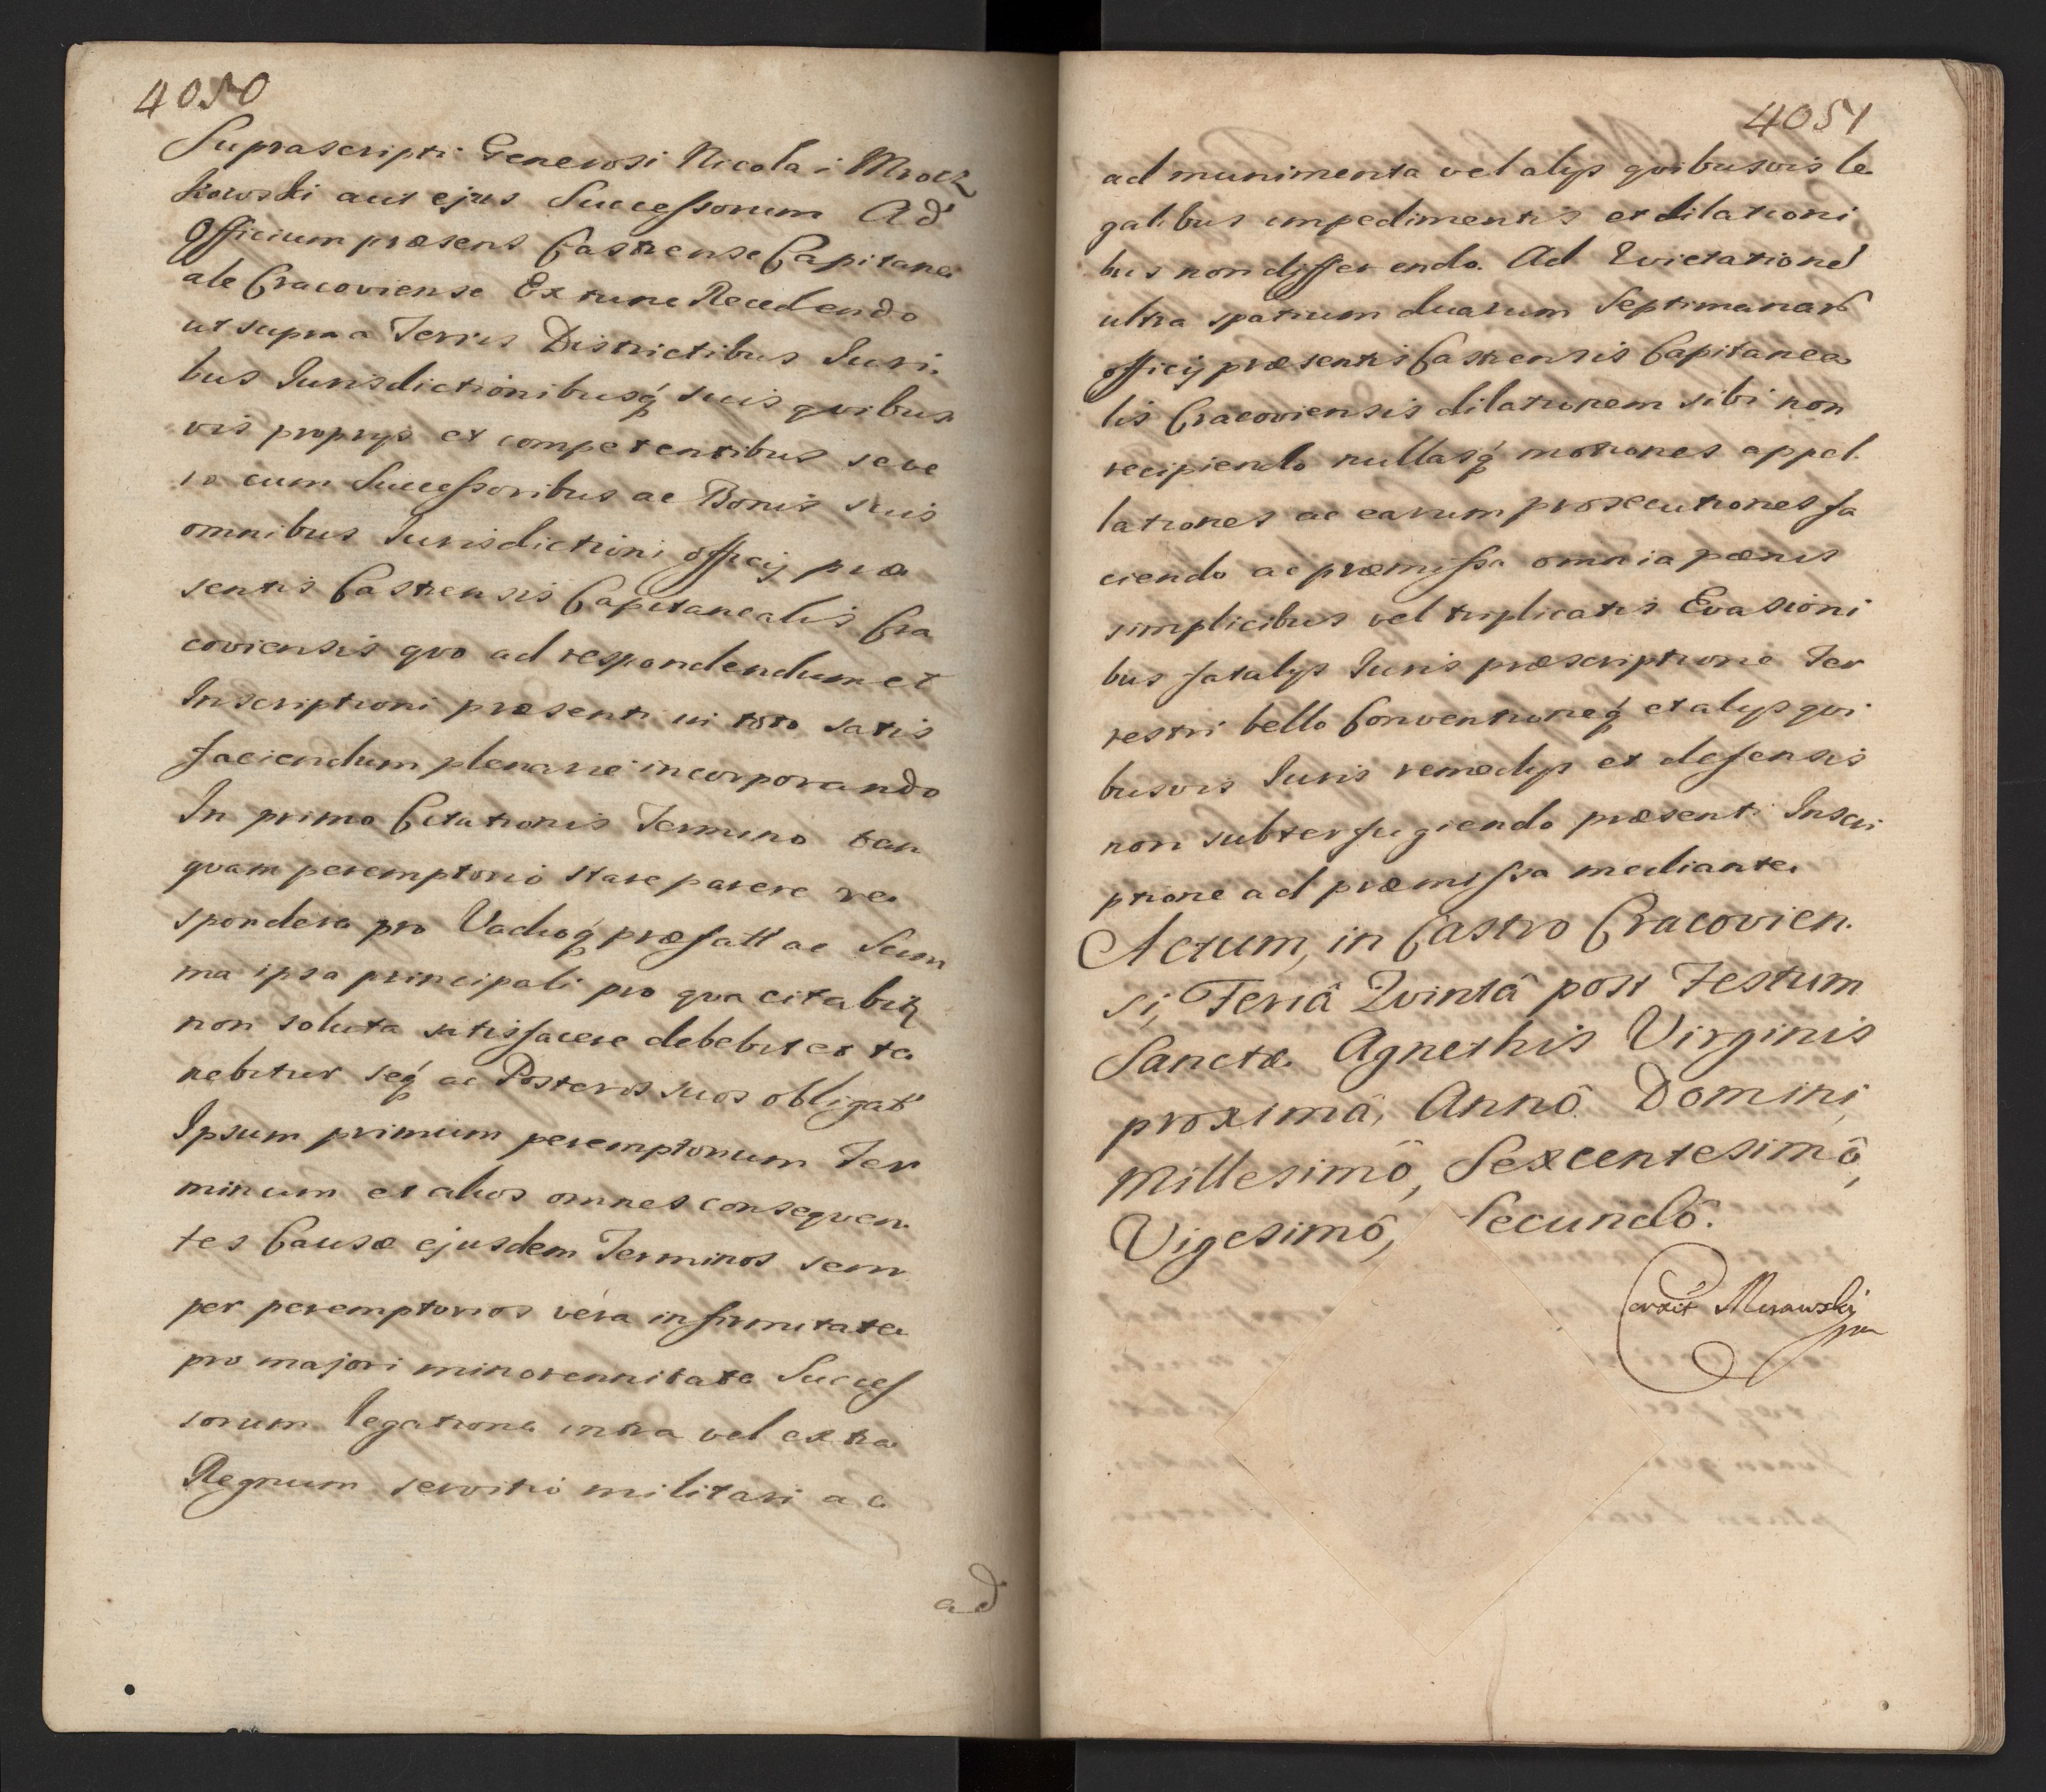 4050
Suprascripti Generosi Nicolai Mrocz
kowski aut ejus Successorum Ad
Officium præsens Castrense Capitane
ale Cracoviense Ex tunc Recedendo
ut supra a Terris Districtibus Iuri
bus Iurisdictionibusq́ suis qvibus
vis proprys et competentibus seve
ro cum Successoribus ac Bonis suis
omnibus Iurisdictioni officij præ
sentis Castrensis Capitanealis Cra
coviensis qvo ad respondendum et
Inscriptioni præsenti in toto satis
faciendum plenarie incorporando
In primo Citationis Termino tan
qvam peremptorio stare parere re
spondere pro Vadioq́ præfatt ac Sum
ma ipsa principali pro qva citabitz
non soluta satisfacere debebit et te
nebitur seq́ ac Posteros suos obligat
Ipsum primum peremptorium Ter
minum et alios omnes conseqven
tes Causæ ejusdem Terminos sem
per peremptorios vera infirmitate
pro majori minorennitate Succes
sorum legatione intra vel extra
Regnum servitio militari ac
ad
4051
ad munimenta vel alys qvibusvis le
galibus impedimentis et dilationi
bus non differendo. Ad Evictatione
ultra spatium duarum Septimanar
officij præsentis Castrensis Capitanea
lis Cracoviensis dilationem sibi non
recipiendo nullasq́ motiones appel
lationes ac earum prosecutiones fa
ciendo ac præmissa omnia pænis
simplicibus vel triplicatis Evasioni
bus fatalys Iuris præscriptione Ter
restri bello Conventioneq́ et alys qvi
busvis Iuris remedys et defensis
non subterfugiendo præsenti Inscri
ptione ad præmissa mediante.
Actum, in Castro Cracovien.
si, Feriâ Qvintâ post Festum
Sanctæ Agnethis Virginis
proximâ, Annô Domini,
Millesimô, Sexcentesimô,
Vigesimô, Secundô.
Corxit Murawskij
mp